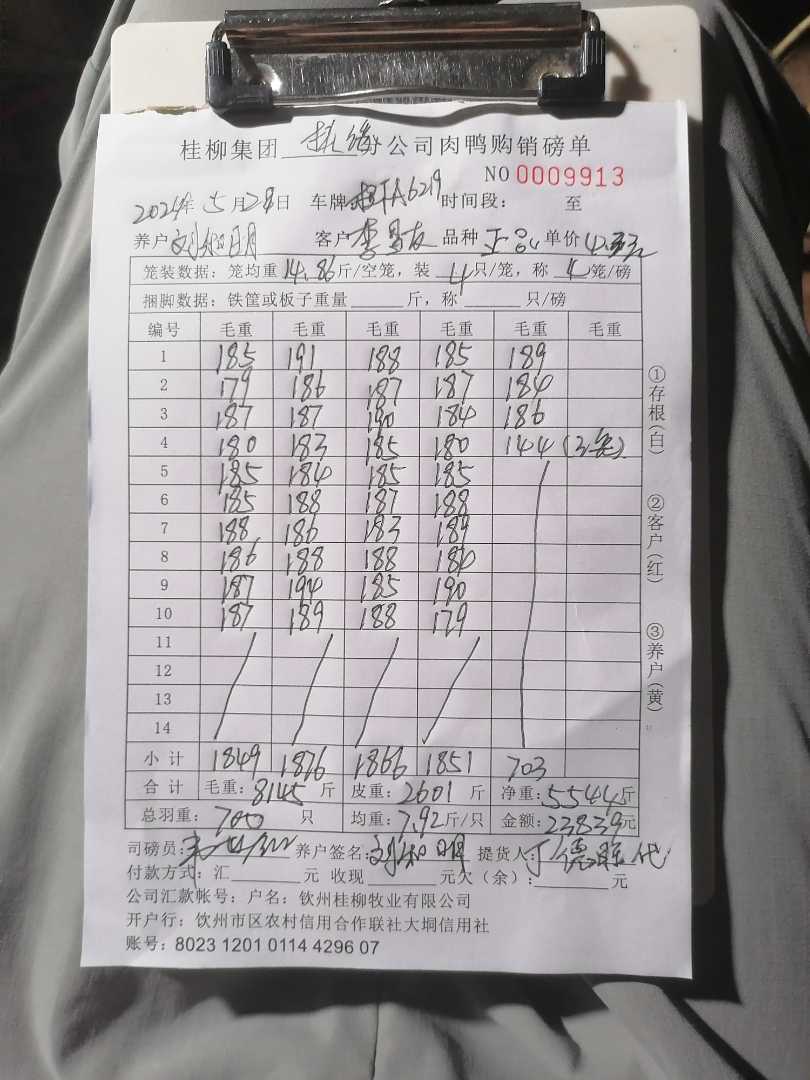 桂柳集团 分公司肉鸭购销磅单
NO 0009913
2024年 5月28日 车牌 A6219 时间段: 至
养户 刘和明 客户 李 友 品种 正品 单价 4.3元
笼装数据: 笼均重 14.86 斤/空笼, 装 4 只/笼, 称 4 笼/磅
捆脚数据: 铁筐或板子重量 斤, 称 只/磅
编号 毛重 毛重 毛重 毛重 毛重 毛重
1 185 191 188 185 189
2 179 186 187 187 184
3 187 187 190 184 186
4 180 183 185 180 144 (3笼)
5 185 184 185 185
6 185 188 187 188
7 188 186 183 189
8 186 188 188 184
9 187 194 185 190
10 187 189 188 179
11
12
13
14
小计 1849 1876 1866 1851 703
合计 毛重: 8145 斤 皮重: 2601 斤 净重: 5544 斤
总羽重: 700 只 均重: 7.92 斤/只 金额: 23839 元
司磅员: 养户签名: 刘和明 提货人: 丁德 代
付款方式: 汇 元 收现 元欠(余): 元
公司汇款帐号: 户名: 钦州桂柳牧业有限公司
开户行: 钦州市区农村信用合作联社大垌信用社
账号: 8023 1201 0114 4296 07
①存根(白)
②客户(红)
③养户(黄)